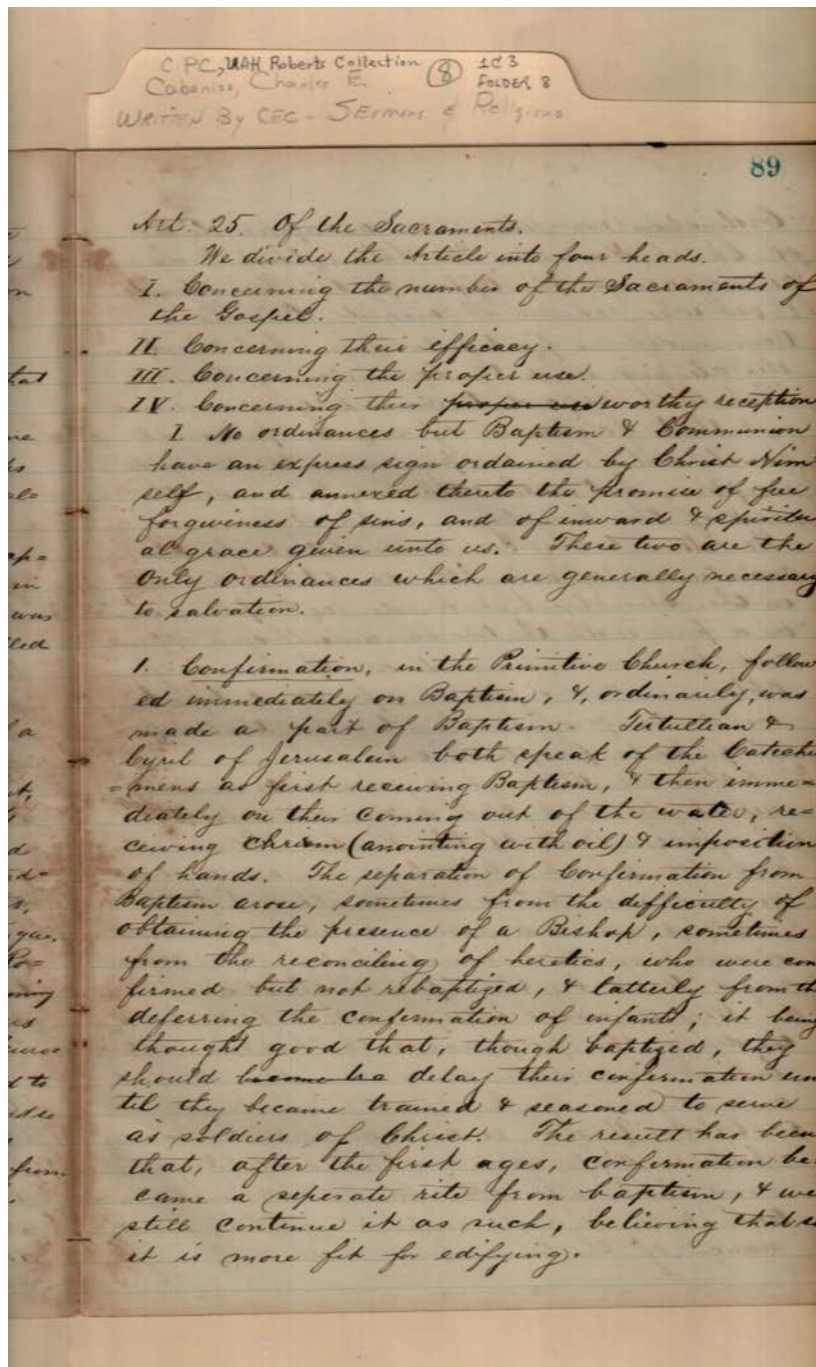 C PC, UAH Roberts Collection 8 1C3
Cabaniss, Charles E. FOLDER 8
WRITTEN By CEC - SERMONS & Religious
89
Art. 25. Of the Sacraments.
We divide the Article into four heads.
I. Concerning the number of the Sacraments of
the Gospel.
II. Concerning their efficacy.
III. Concerning the proper use.
IV. Concerning their proper use worthy reception
I No ordinances but Baptism & Communion
have an express sign ordained by Christ Him
self, and annexed thereto the promise of free
forgiveness of sins, and of inward & spiritu
al grace given unto us. These two are the
only ordinances which are generally necessary
to salvation.
1. Confirmation, in the Primitive Church, follow
ed immediately on Baptism, &, ordinarily, was
made a part of Baptism. Tertullian &
Cyril of Jerusalem both speak of the Catechu
=mens as first receiving Baptism, & then imme=
diately on their coming out of the water, re=
ceiving Chrism (anointing with oil) & imposition
of hands. The separation of Confirmation from
Baptism arose, sometimes from the difficulty of
obtaining the presence of a Bishop, sometimes
from the reconciling of heretics, who were con
firmed but not rebaptized, & latterly from th
deferring the confirmation of infants; it being
thought good that, though baptized, they
should delay their confirmation un
til they became trained & seasoned to serve
as soldiers of Christ. The result has been
that, after the first ages, confirmation be
came a seperate rite from baptism, & we
still continue it as such, believing that s
it is more fit for edifying.